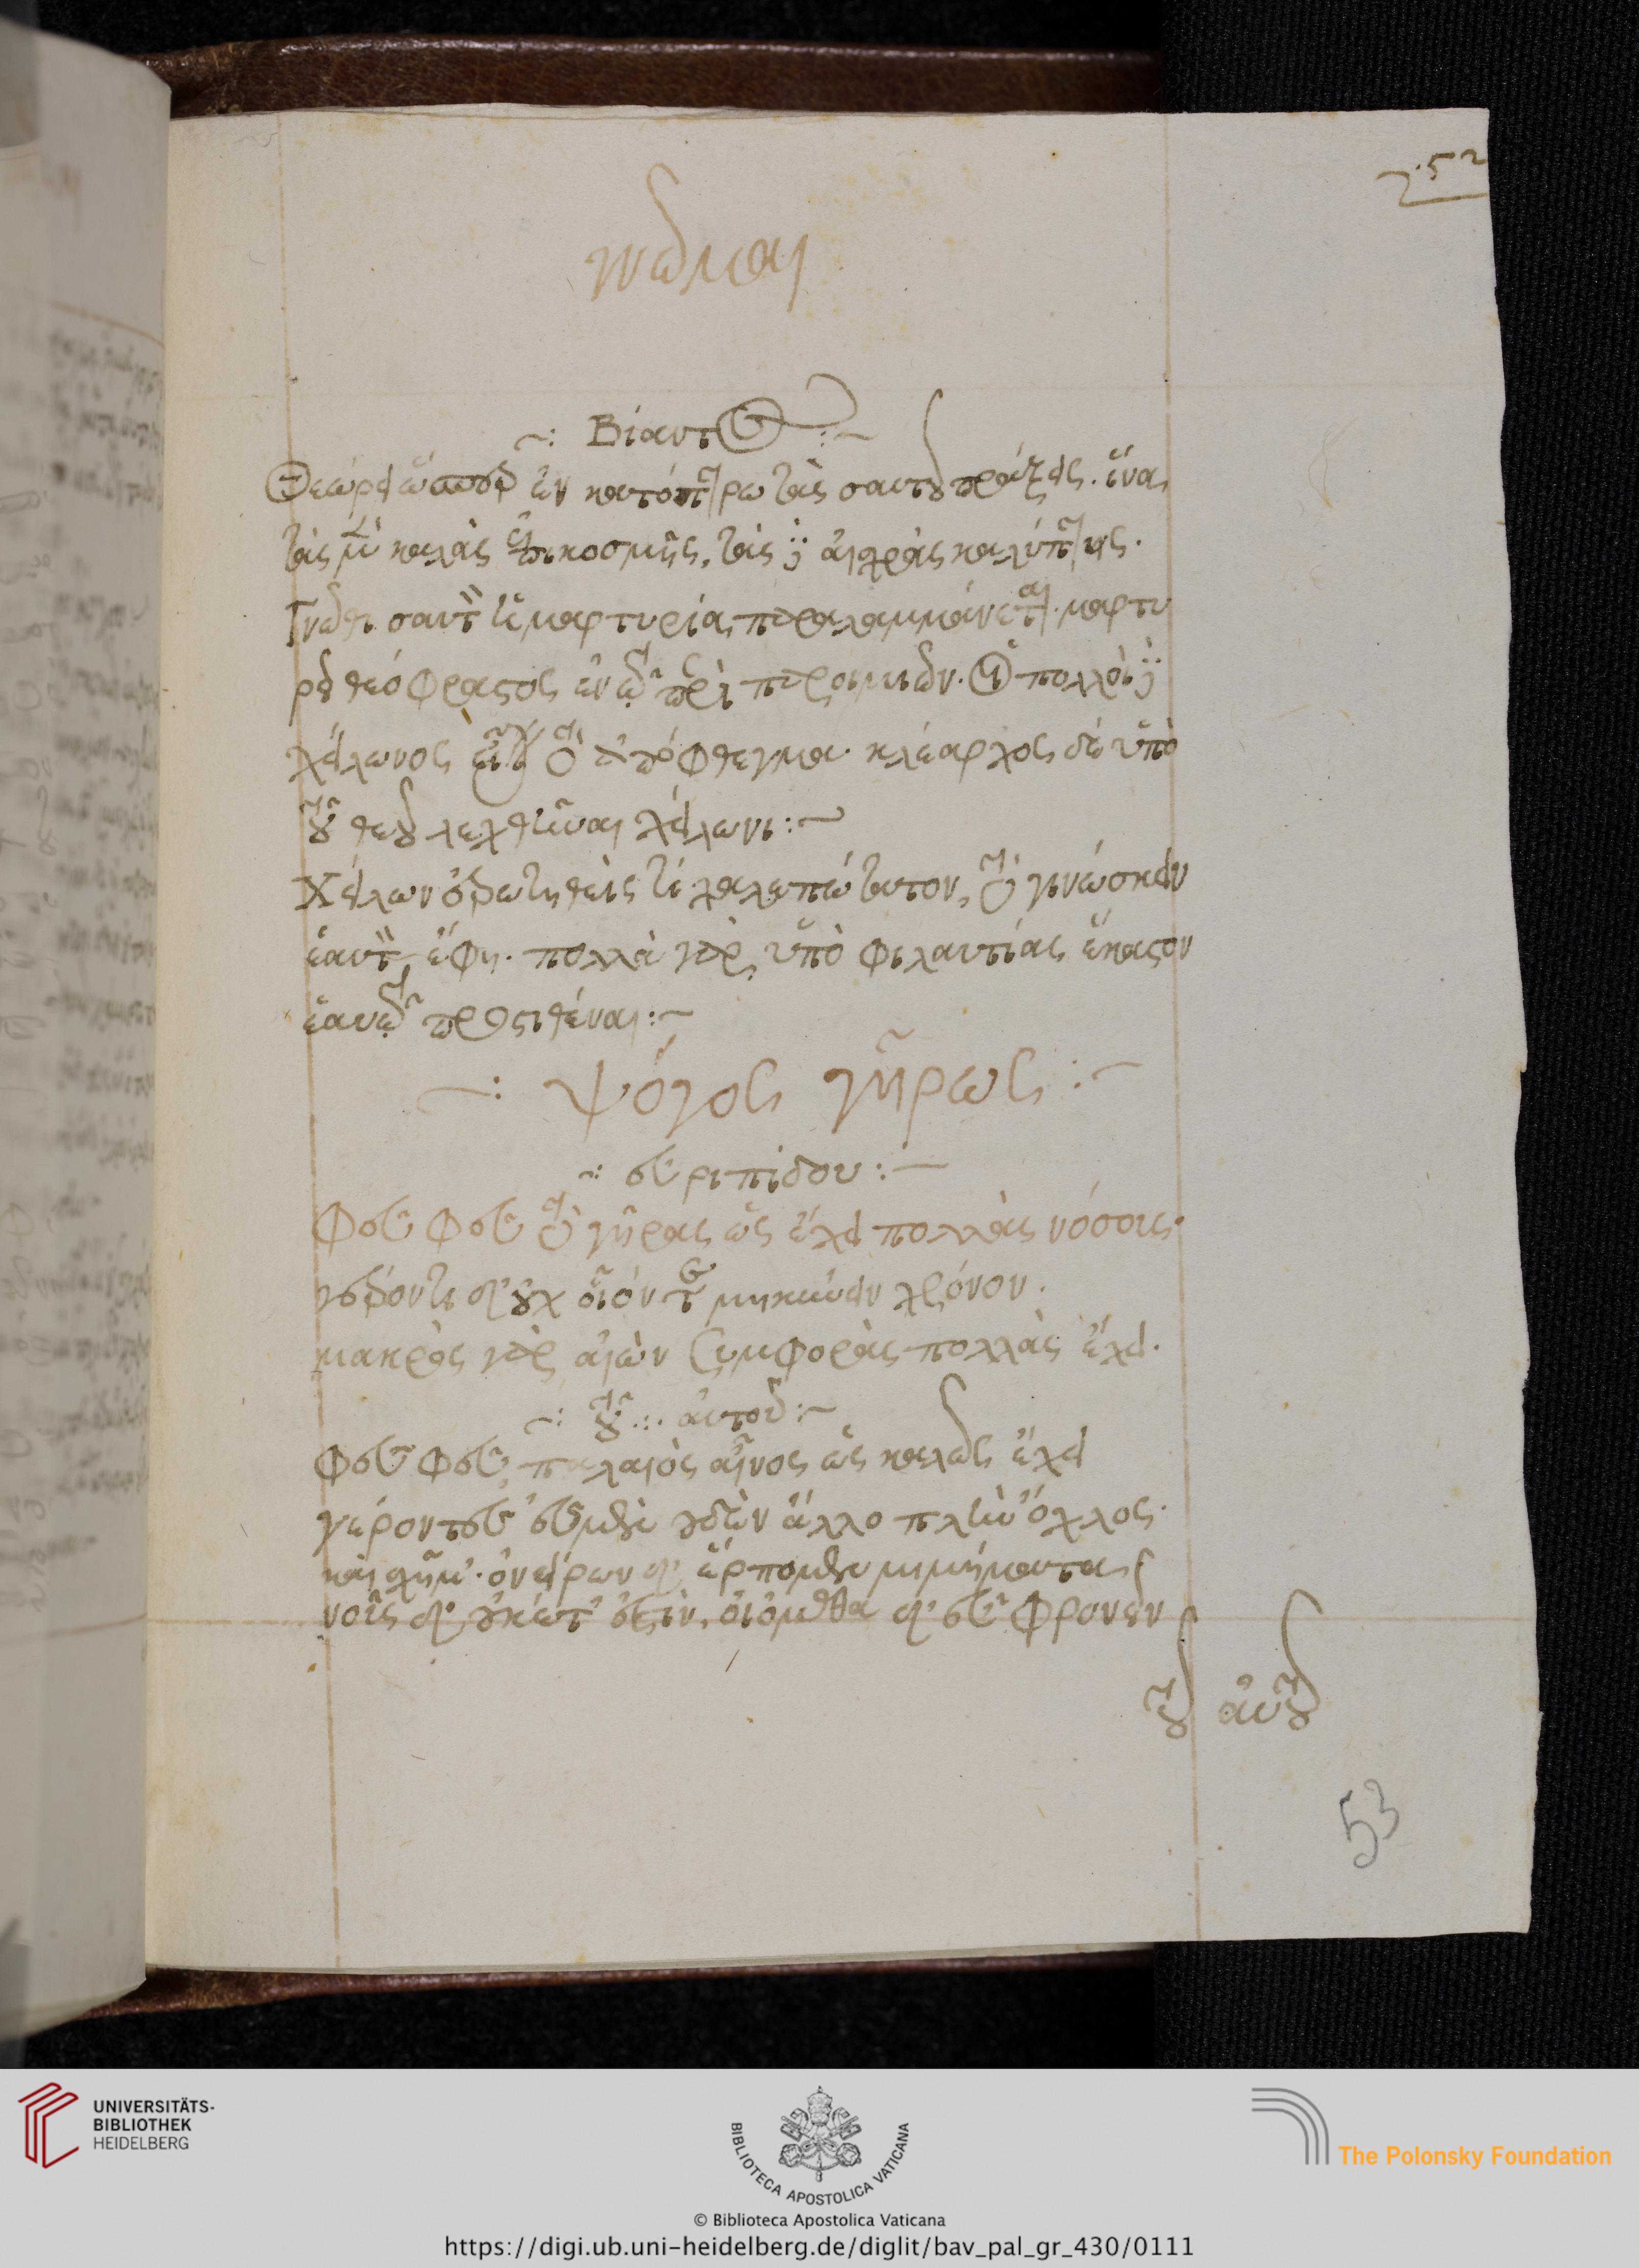 52
γνῶμαι
-: Βίαντος :-
Θεώρει ὥσπερ ἐν κατόπτρω τὰς σαυτοῦ πράξεις. ἵνα
τὰς μὲν καλὰς ἐπικοσμῆς, τὰς δὲ αἰσχρὰς καλύπτης.
Γνῶθι σαυτὸν μαρτυρία παραλαμμάνεται. μαρτυ
ρεῖ θεόφραστος ἐν τῷ περὶ παροιμιῶν. οἱ πολλοὶ δὲ
χείλωνος εἶναι τὸ ἀπόφθεγμα. κλέαρχος δὲ ὑπὸ
τοῦ θεοῦ λεχθῆναι χείλωνι :-
Χείλων ἐρωτηθεὶς τί χαλεπώτατον, τὸ γινώσκειν
ἑαυτὸν, ἔφη. πολλὰ γὰρ ὑπὸ φιλαυτίας ἕκαστον
ἑαυτῷ προστιθέναι :-
-: ψόγος γήρως :-
-: εὐριπίδου :-
Φεῦ φεῦ τὸ γῆρας ὡς ἔχει πολλὰς νόσους.
γέροντι δ' οὐχ οἷόν τε μηκύνειν χρόνον.
μακρὸς γὰρ αἰὼν συμφορὰς πολλὰς ἔχει.
-: τοῦ αὐτοῦ :-
φεῦ φεῦ παλαιὸς αἶνος ὡς καλῶς ἔχει
γέροντες ἐσμὲν οὐδὲν ἄλλο πλὴν ὄχλος.
καὶ σχῆμ'. ὀνείρων δ' ἕρπομεν μιμήματα
νοῦς δ' οὐκέτ' ἐστὶν, οἰόμεθα δ' εὖ φρονεῖν
τοῦ αὐτοῦ
53
UNIVERSITÄTS-
BIBLIOTHEK
HEIDELBERG
BIBLIOTECA APOSTOLICA VATICANA
The Polonsky Foundation
© Biblioteca Apostolica Vaticana
https://digi.ub.uni-heidelberg.de/diglit/bav_pal_gr_430/0111